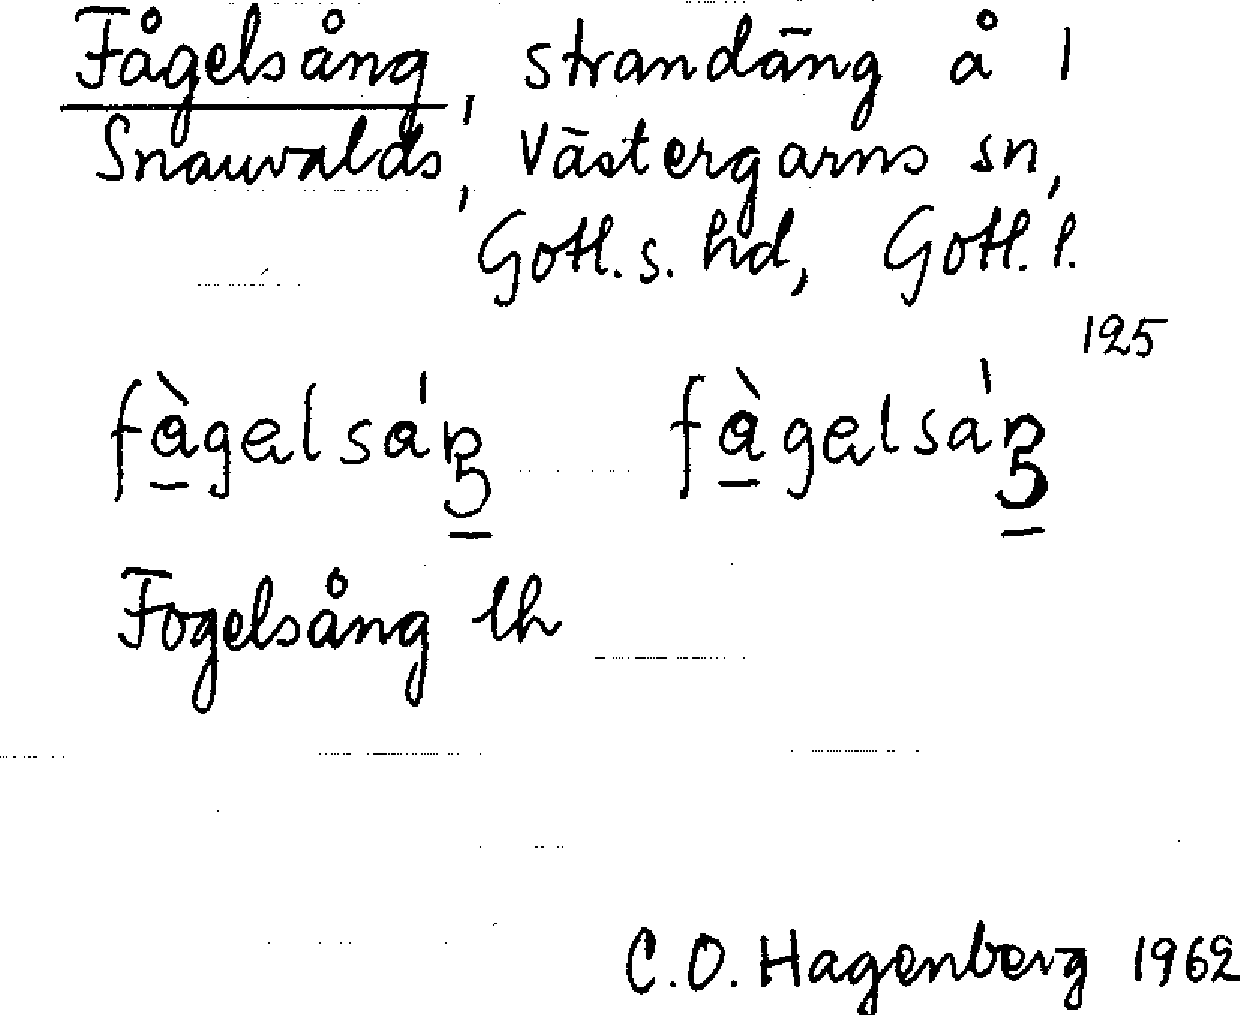 Fågelsång, strandäng å 1
Snauvalds, Västergarns sn,
Gotl. s. hd, Gotl. l.
125
fàgelsáŋ fàgelsáŋ
Fogelsång lh
C.O. Hagenberg 1962